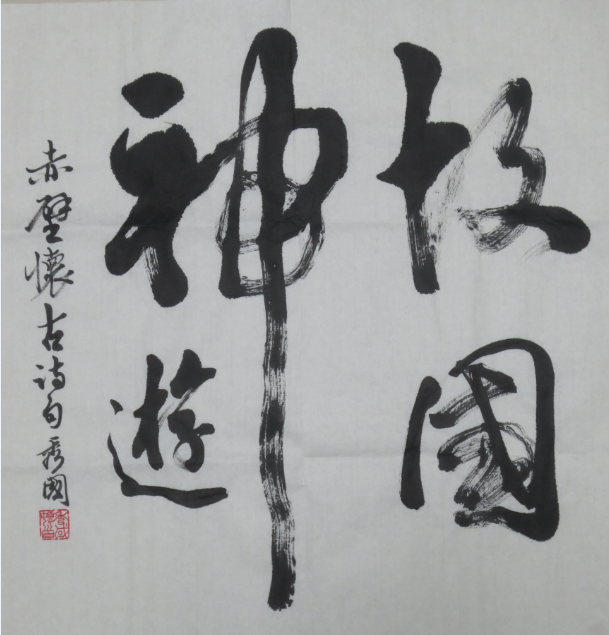 故國
神遊
赤壁懷古詩句秀國